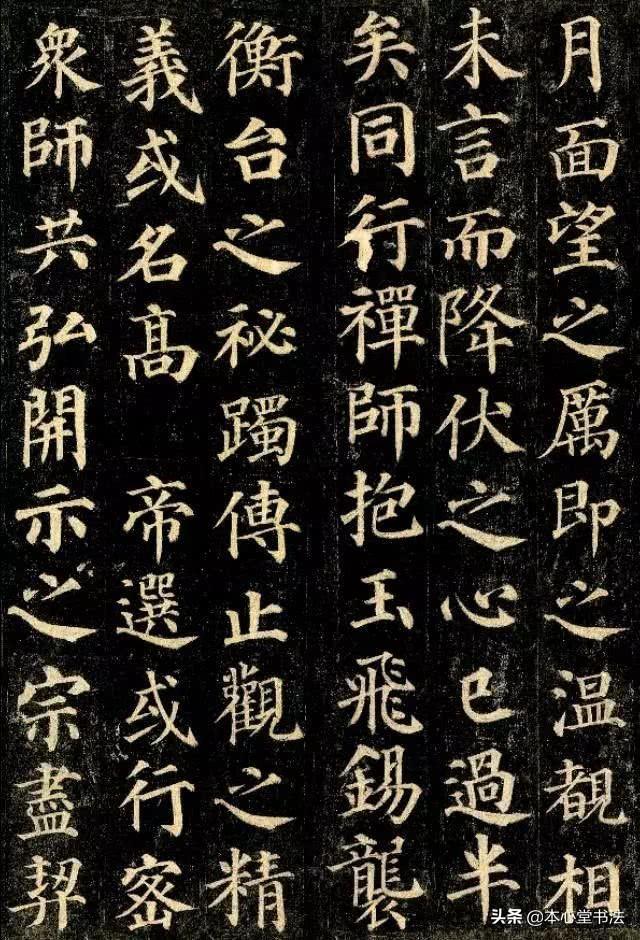 月面望之厲即之温覩相
未言而降伏之心已過半
矣同行禪師抱玉飛錫襲
衡台之秘躅傳止觀之精
義或名高 帝選或行密
衆師共弘開示之宗盡契
头条 @本心堂书法